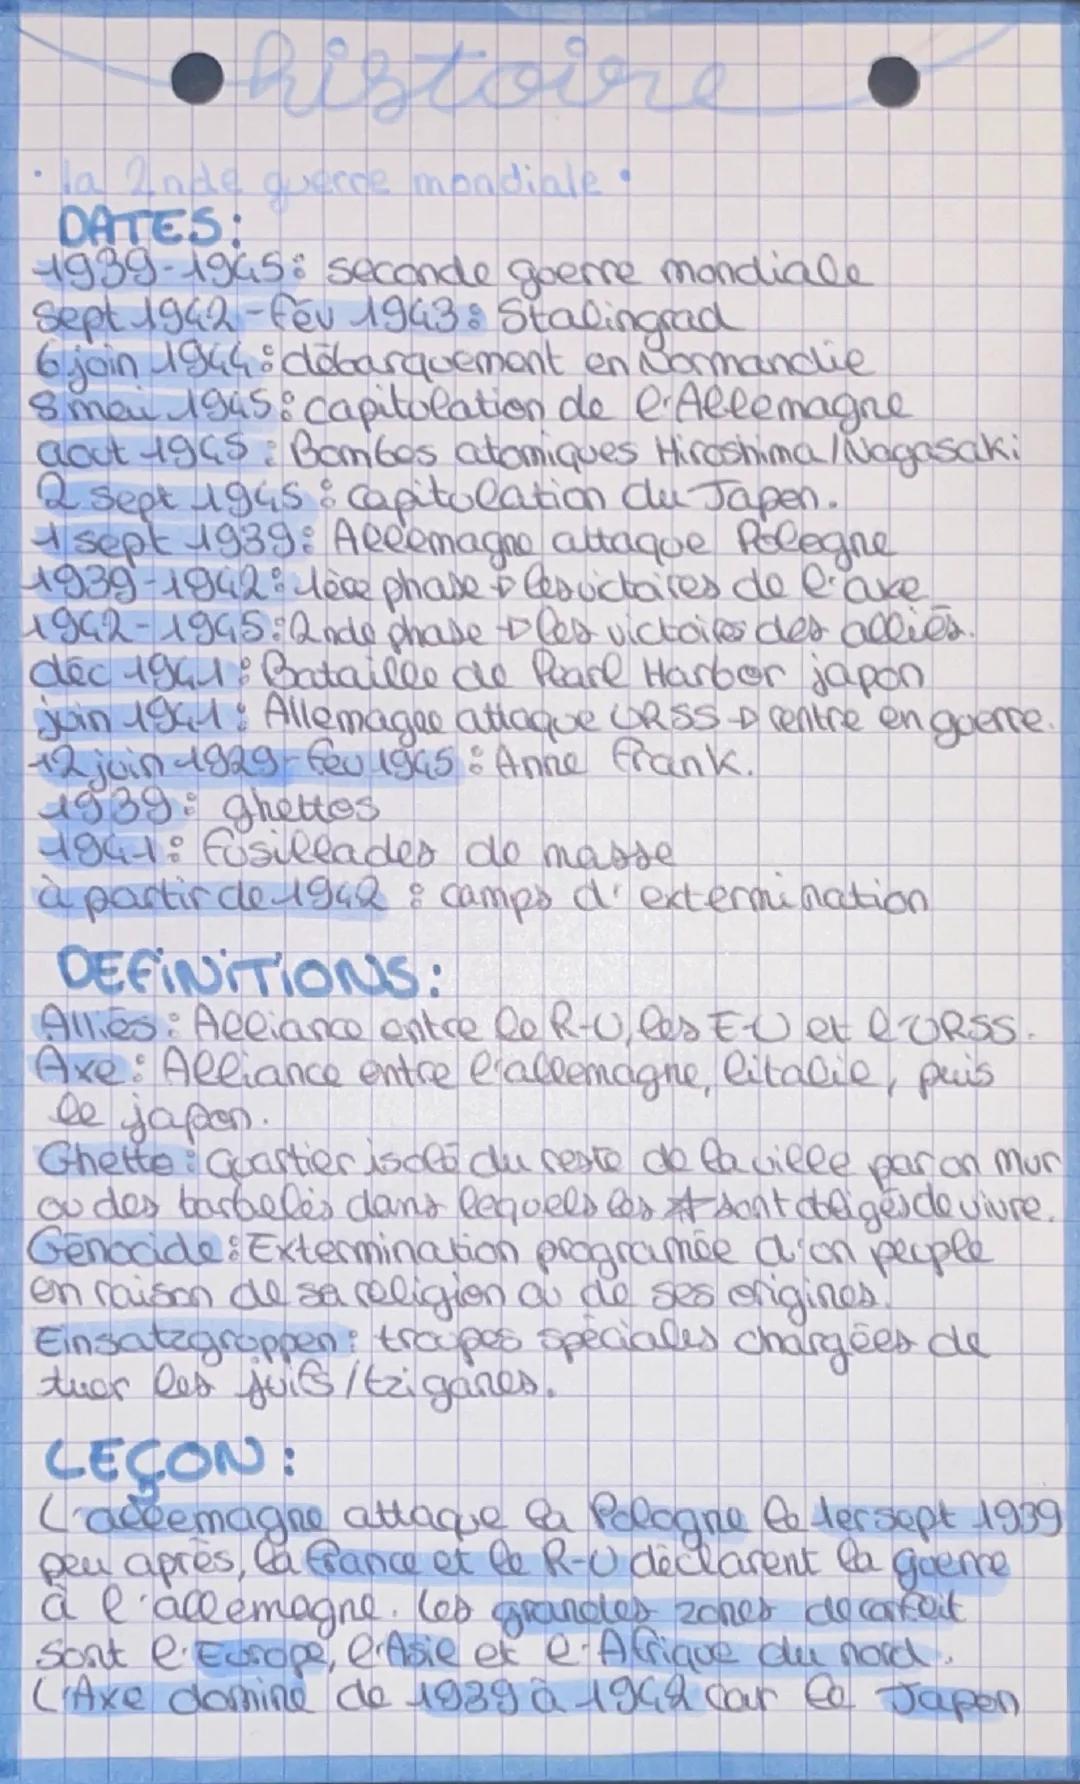 histoire
• la 2nde guerre mondiale •
DATES:
1939-1945: seconde guerre mondiale
Sept 1942-fév 1943: Stalingrad
6 juin 1944: débarquement en Normandie
8 mai 1945: capitulation de l'Allemagne
aout 1945: Bombes atomiques Hiroshima/Nagasaki
2 sept 1945: capitulation du Japon.
1 sept 1939: Allemagne attaque Pologne
1939-1942: 1ère phase → les victoires de l'axe
1942-1945: 2nde phase → les victoires des alliés.
déc 1941: Bataille de Pearl Harbor japon
juin 1941: Allemagne attaque URSS → rentre en guerre.
12 juin 1929-fev 1945: Anne Frank.
1939: ghettos
1941: fusillades de masse
à partir de 1942: camps d'extermination
DEFINITIONS:
Alliés: Alliance entre le R-U, les E-U et l'URSS.
Axe: Alliance entre l'allemagne, l'italie, puis
le japon.
Ghetto: Quartier isolé du reste de la ville par un mur
ou des barbelés dans lequels les ✡ sont obligés de vivre.
Génocide: Extermination programée d'un peuple
en raison de sa religion ou de ses origines.
Einsatzgroppen: troupes spéciales chargées de
tuer les juifs/tziganes.
LEÇON:
L'allemagne attaque la Pologne le 1er sept 1939
peu après, la France et le R-U déclarent la guerre
à l'allemagne. Les grandes zones de conflit
sont l'Europe, l'Asie et l'Afrique du nord.
L'Axe domine de 1939 à 1942 car le Japon